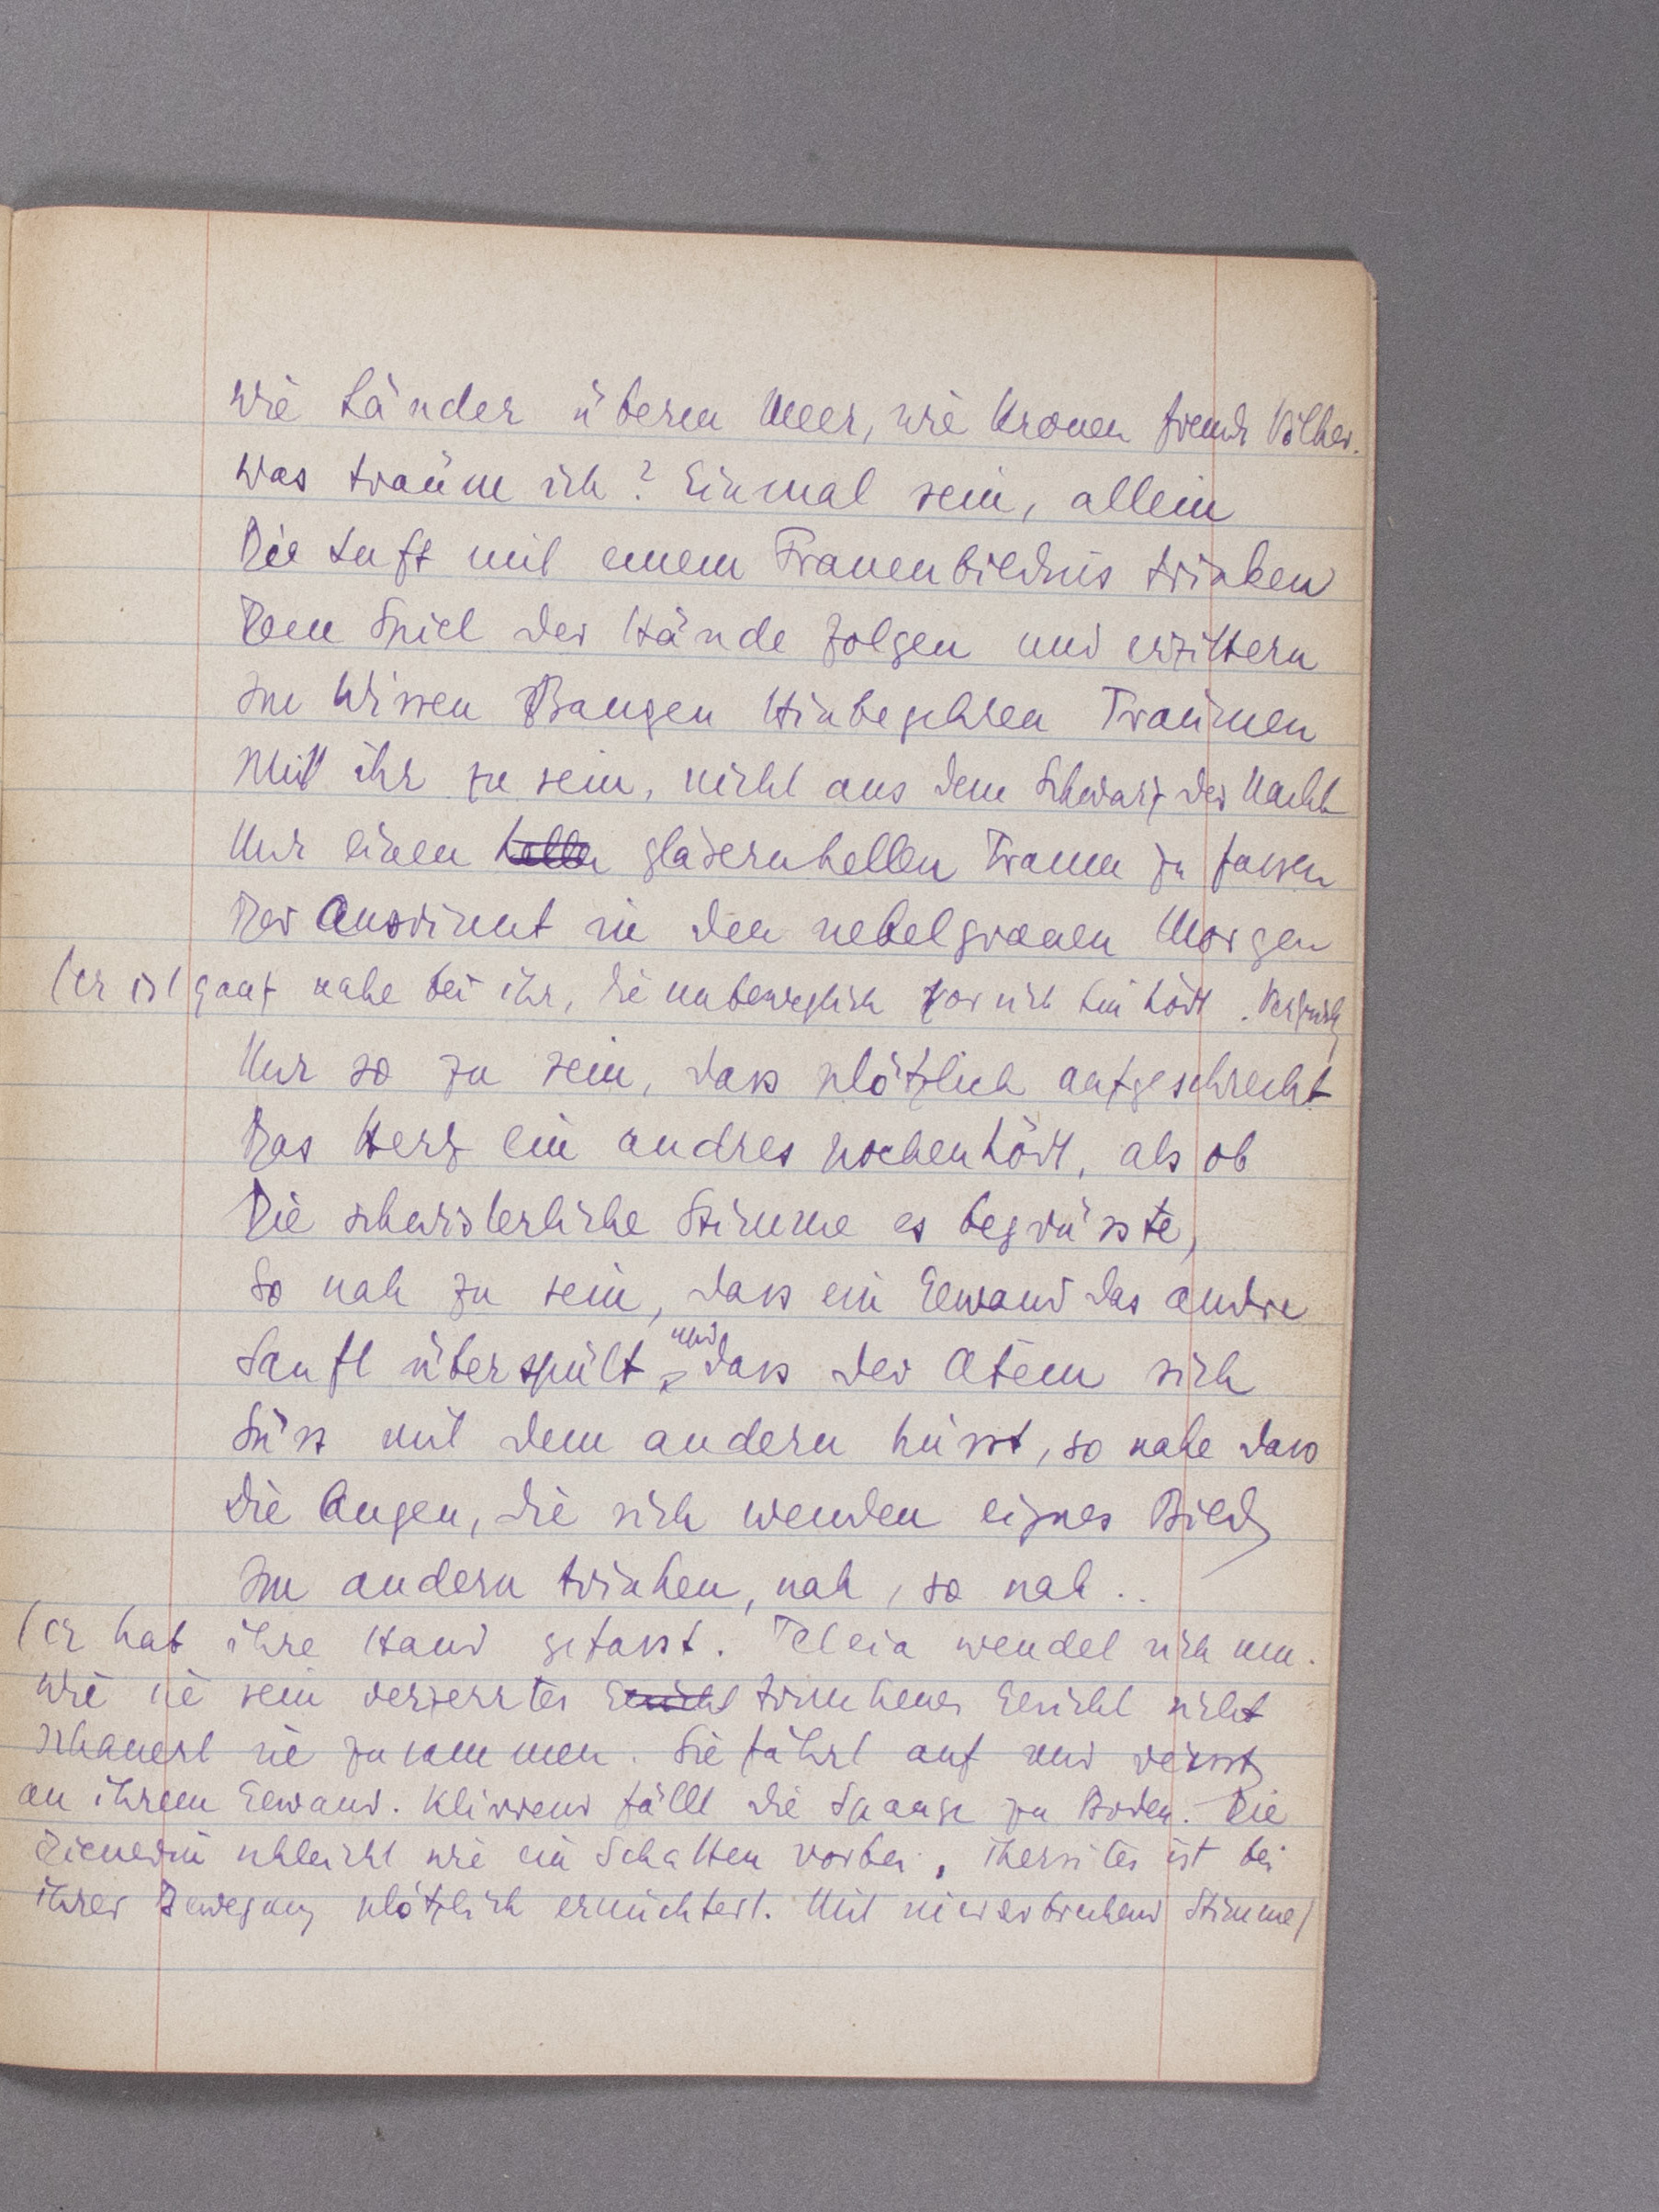 Wie Länder überm Meer, wie Kronen fremder Völker.
Was träum ich? Einmal sein, allein
Die Luft mit einem Frauenbildnis trinken
Dem Spiel der Hände folgen und erzittern
Im Wissen Bangen Hinbegehren Träumen
Mit ihr zu sein, nicht aus dem Schwarz der Nacht
Nur einen hellen gläsernhellen Traum zu fassen
Der ausrinnt in den nebelgrauen Morgen
(Er ist ganz nahe bei ihr, die unbeweglich vor sich hin hört.
Nur so zu sein, dass plötzlich aufgeschreckt
Das Herz ein andres pochen hört, als ob
Die schwisterliche Stimme es begrüsste,
So nah zu sein, dass ein Gewand das andre
Sanft überspült und dass der Atem sich
Süss mit dem andern küsst, so nahe dass
Die Augen, die sich wenden eignes Bild
Im andern trinken, nah, so nah..
(Er hat ihre Hand gefasst. Teleia wendet sich um.
Wie sie sein verzerrtes Gesicht trunkenes Gesicht sieht
schauert sie zusammen. Sie fährt auf und reisst
an ihrem Gewand. Klirrend fällt die Spange zu Boden. Die
Dienerin schleicht wie ein Schatten vorbei. Thersites ist bei
ihrer Bewegung plötzlich ernüchtert. Mit niederbrechend Stimme)